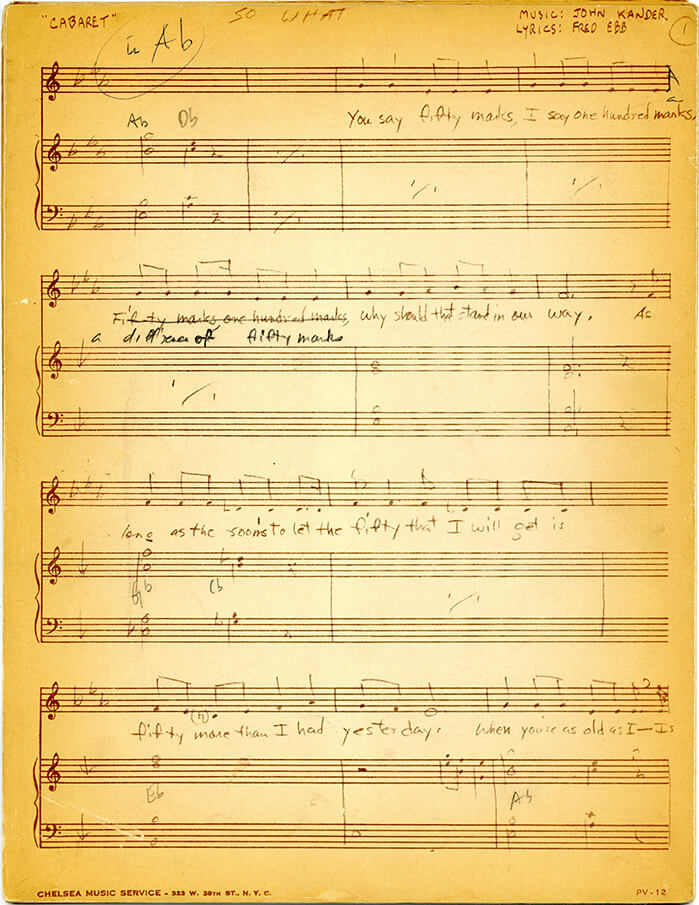 "CABARET"
SO WHAT
MUSIC: JOHN KANDER
LYRICS: FRED EBB
1
in Ab
Ab Db
You say fifty marks, I say one hundred marks,
a
Fifty marks, one hundred marks, why should that stand in our way. As
a difference of fifty marks
long as the room's to let the fifty that I will get is
Gb Cb
fifty more than I had yesterday. When you're as old as I—Is
(♮)
Eb Ab
CHELSEA MUSIC SERVICE - 323 W. 38TH ST., N. Y. C.
PV-12